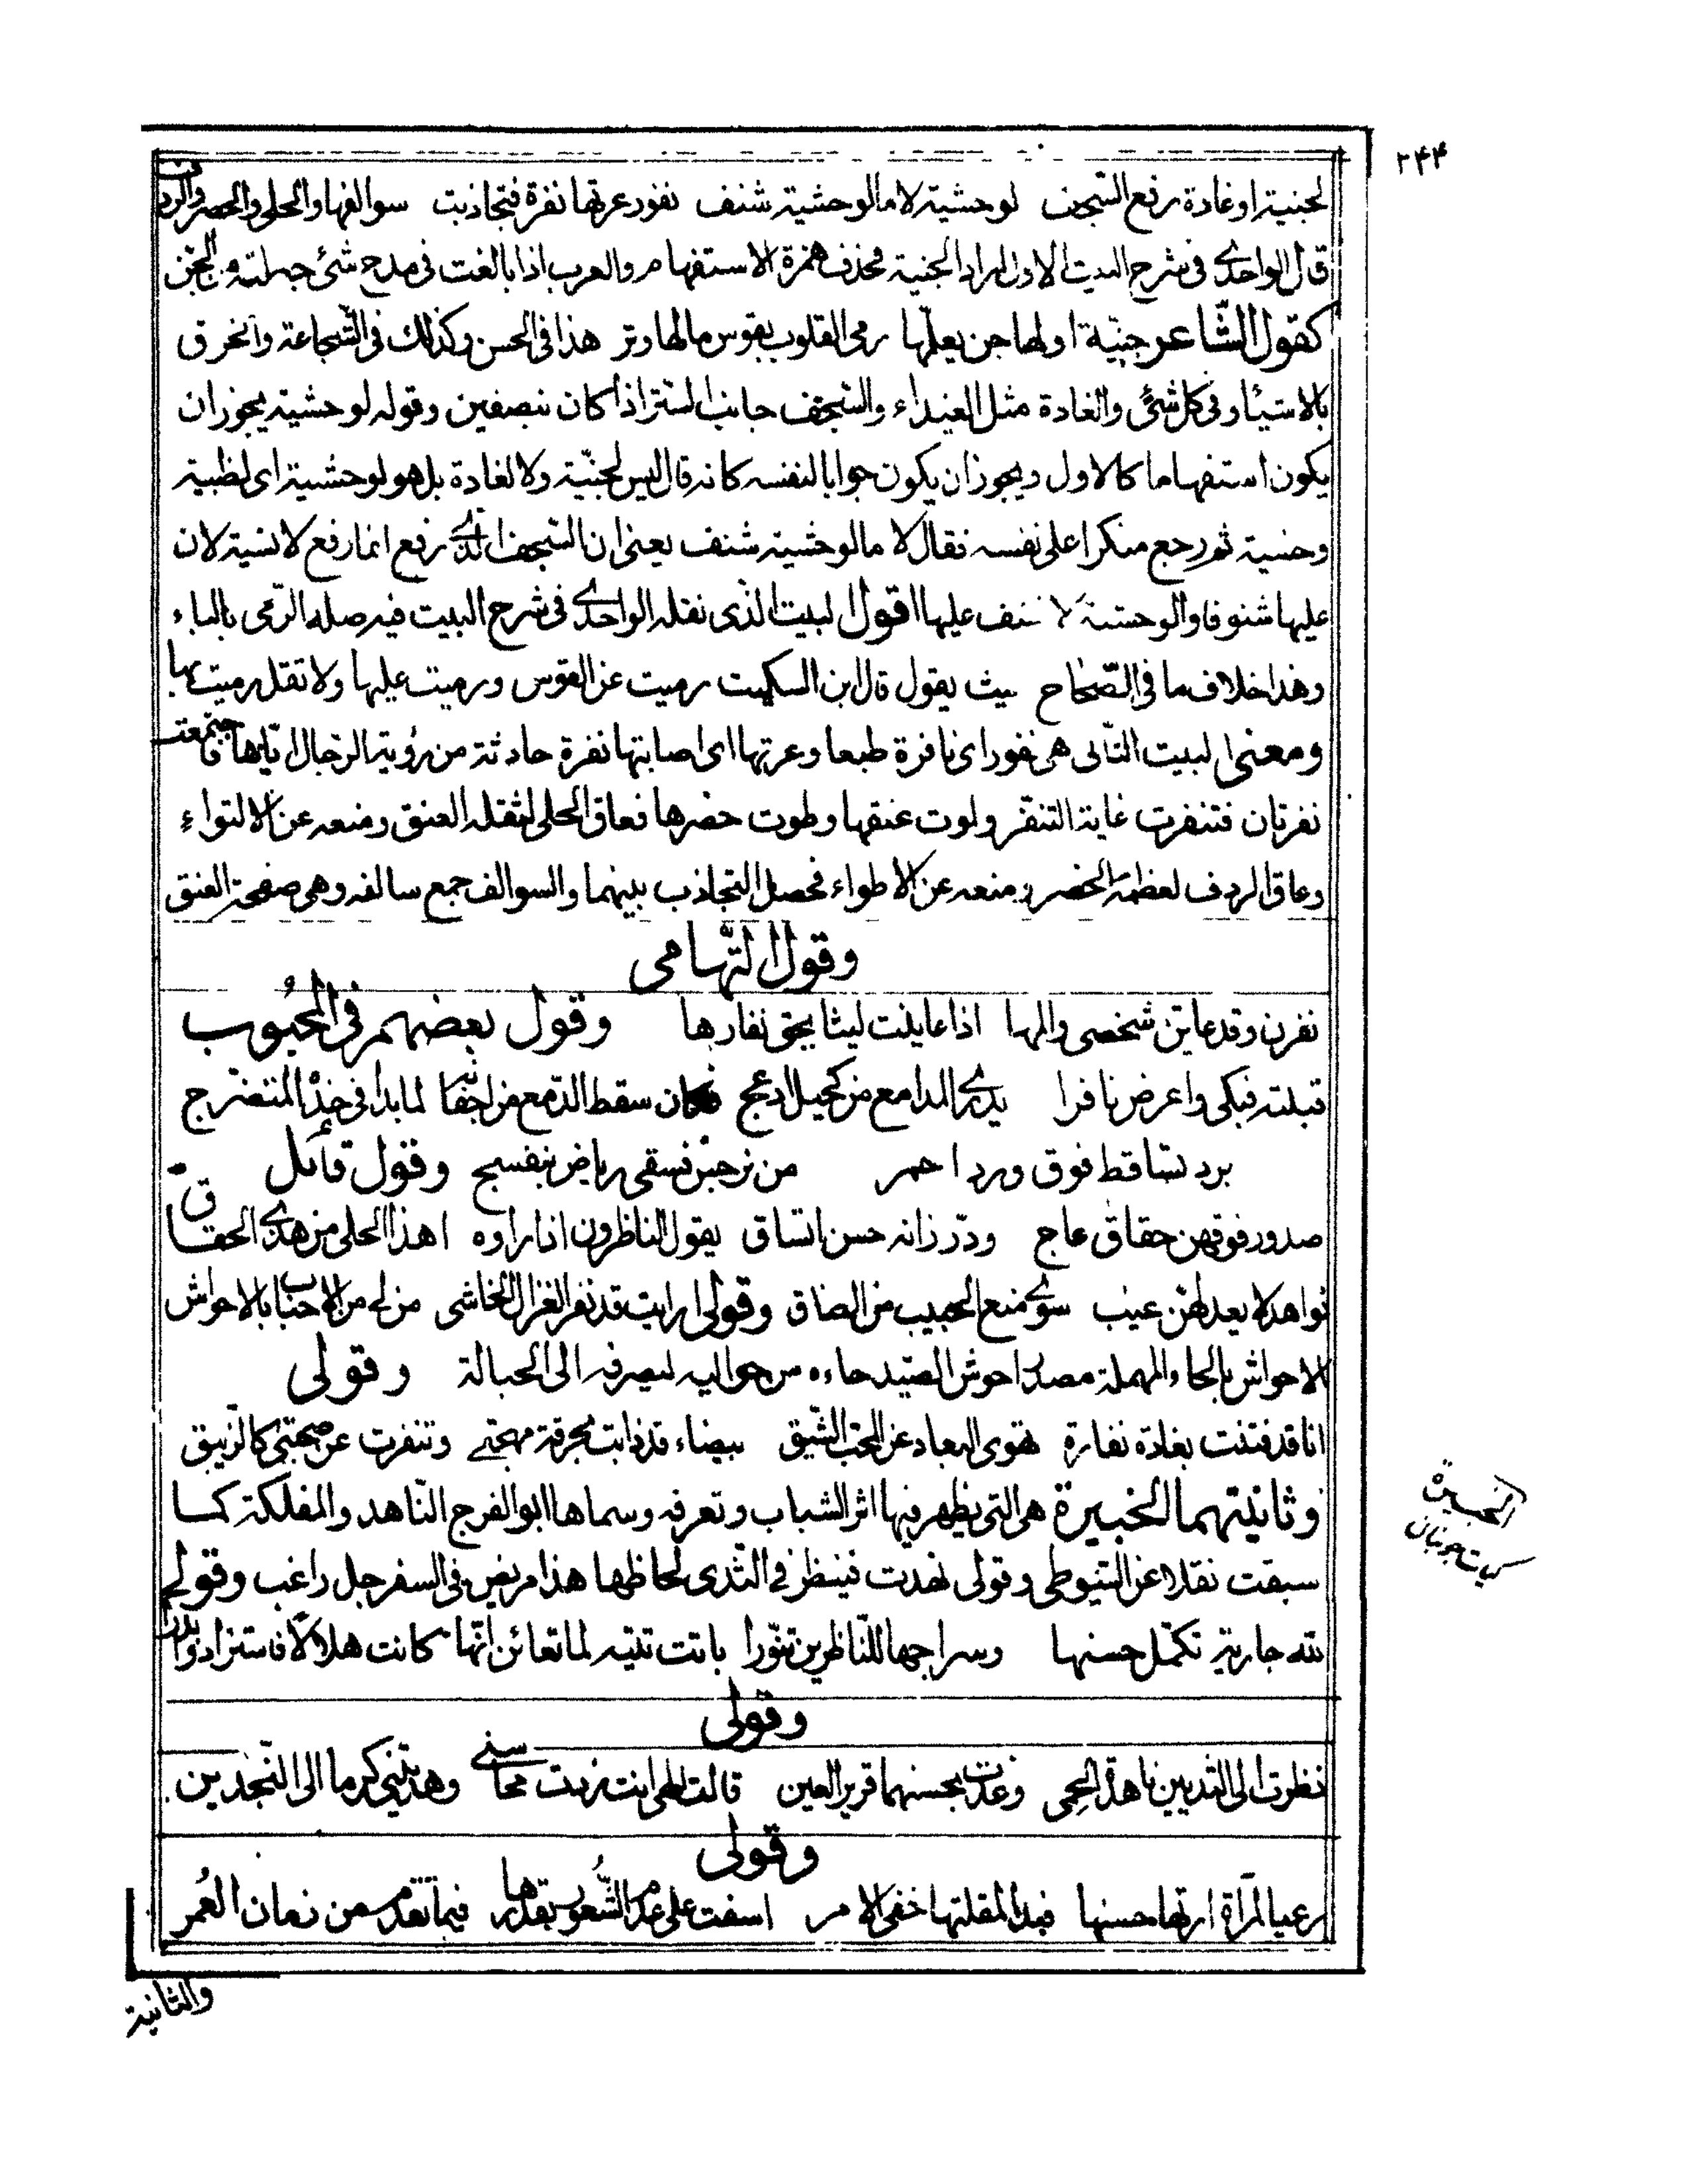 ۲۴۴
لجنية او غادة رفع السجف لوحشية لا ما لوحشية شنف نفور عرتها نفرة فتجاذبت سوالفها والحلي والخصر والردف
قال الواحدي في شرح البيت الاول اراد الجنية فحذف همزة الاستفهام والعرب اذا بالغت في مدح شئ جعلته من الجن
كقول الشاعر جنية اولها جن يعلمها رمى القلوب بقوس ما لها وتر هذا في الحسن وكذلك في الشجاعة والخرق
بالاشياء وفي كل شئ والغادة مثل الغيداء والسجف جانب الستر اذا كان بنصفين وقوله لوحشية يجوز ان
يكون استفهاما كالاول ويجوز ان يكون جوابا لنفسه كانه قال ليس لجنية ولا لغادة بل هو لوحشية اى لظبية
وحشية ثم رجع منكرا على نفسه فقال لا ما لوحشية شنف يعني ان السجف الذي رفع انما رفع لانسية لان
عليها شنوفا والوحشية لا شنف عليها اقول البيت الذى نقله الواحدي في شرح البيت فيه صلة الرمى بالباء
وهذا خلاف ما في الصحاح حيث يقول قال ابن السكيت رميت عن القوس ورميت عليها ولا تقل رميت بها
ومعنى البيت الثاني هى نفور اى نافرة طبعا وعرتها اى اصابتها نفرة حادثة من رؤية الرجال اياها فاجتمعت
نفرتان فتنفرت غاية التنفر ولوت عنقها وطوت خصرها فعاق الحلي لثقله العنق ومنعه عن الالتواء
وعاق الردف لعظمه الخصر ومنعه عن الانطواء فحصل التجاذب بينهما والسوالف جمع سالفه وهى صفحة العنق
وقول التهامي
نفرن وقد عاين شخصي والمها اذا عاينت ليثا يحق نفارها وقول بعضهم في المحبوب
قبلته فبكى واعرض نافرا يذري المدامع من كحيل ادعج فكان سقط الدمع من اجفانه لما بدا في خده المتضرج
برد تساقط فوق ورد احمر من نرجس فسقى رياض بنفسج وقول قائل
صدور فوقهن حقاق عاج ودر زانه حسن اتساق يقول الناظرون اذا راوه اهذا الحلي من هذي الحقاق
نواهد لا يعد لهن عيب سوى منع المحبيب من العناق وقولى ارايت قد نفر الغزال الخاشى من لي من الاحباب بالاحواش
الاحواش بالحاء المهملة مصدر احوش الصيد جاءه من حواليه ليصرفه الى الحبالة وقولى
انا قد فتنت بغادة نفارة تهوى البعاد عن المحب الشيق بيضاء قد ذابت بحرقة مهجتي وتنفرت عن صحبتي كالزيبق
وثانيتهما الخبيرة هى التي يظهر فيها اثر الشباب وتعرفه وسماها ابو الفرج الناهد والمفلكة كما
سبقت نقلا عن السيوطي وقولى نهدت فينظر في الثدى لحاظها هذا مريض في السفرجل راغب وقولي
لله جارية تكمل حسنها وسراجها للناظرين تنورا باتت تتيه لما تعائن انها كانت هلالا فاستزاد وابدرا
وقولى
نظرت الى الثديين ناهدة الحمى وغدت بحسنهما قرير العين قالت الهي انت زنت محاسني وهديتني كرما الى النجدين
وقولى
رعيا لمرآة ارتها حسنها فبدا لمقلتها خفي الامر اسفت على عدم الشعور بقدرها فيما تقدم من زمان العمر
الخبيرة
والثانية